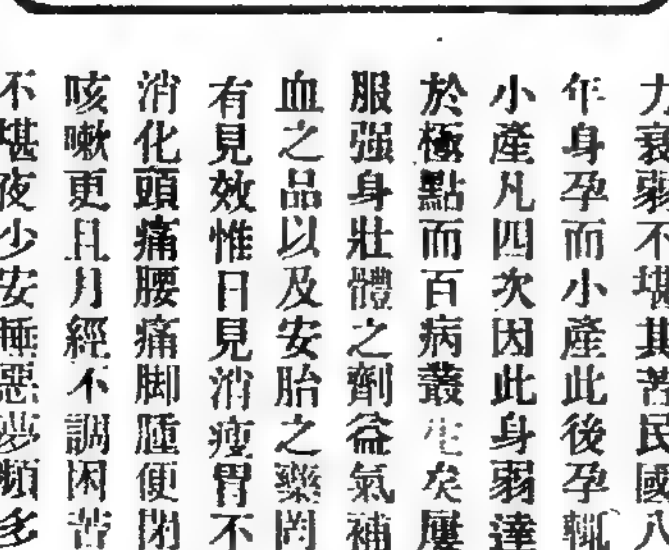 力衰弱不堪其苦民國八
年身孕而小產此後孕輒
小產凡四次因此身弱達
於極點而百病叢生矣屢
服强身壯體之劑益氣補
血之品以及安胎之藥罔
有見效惟日見消瘦胃不
消化頭痛腰痛脚腫便閉
咳嗽更且月經不調困苦
不堪夜少安睡惡夢頻多